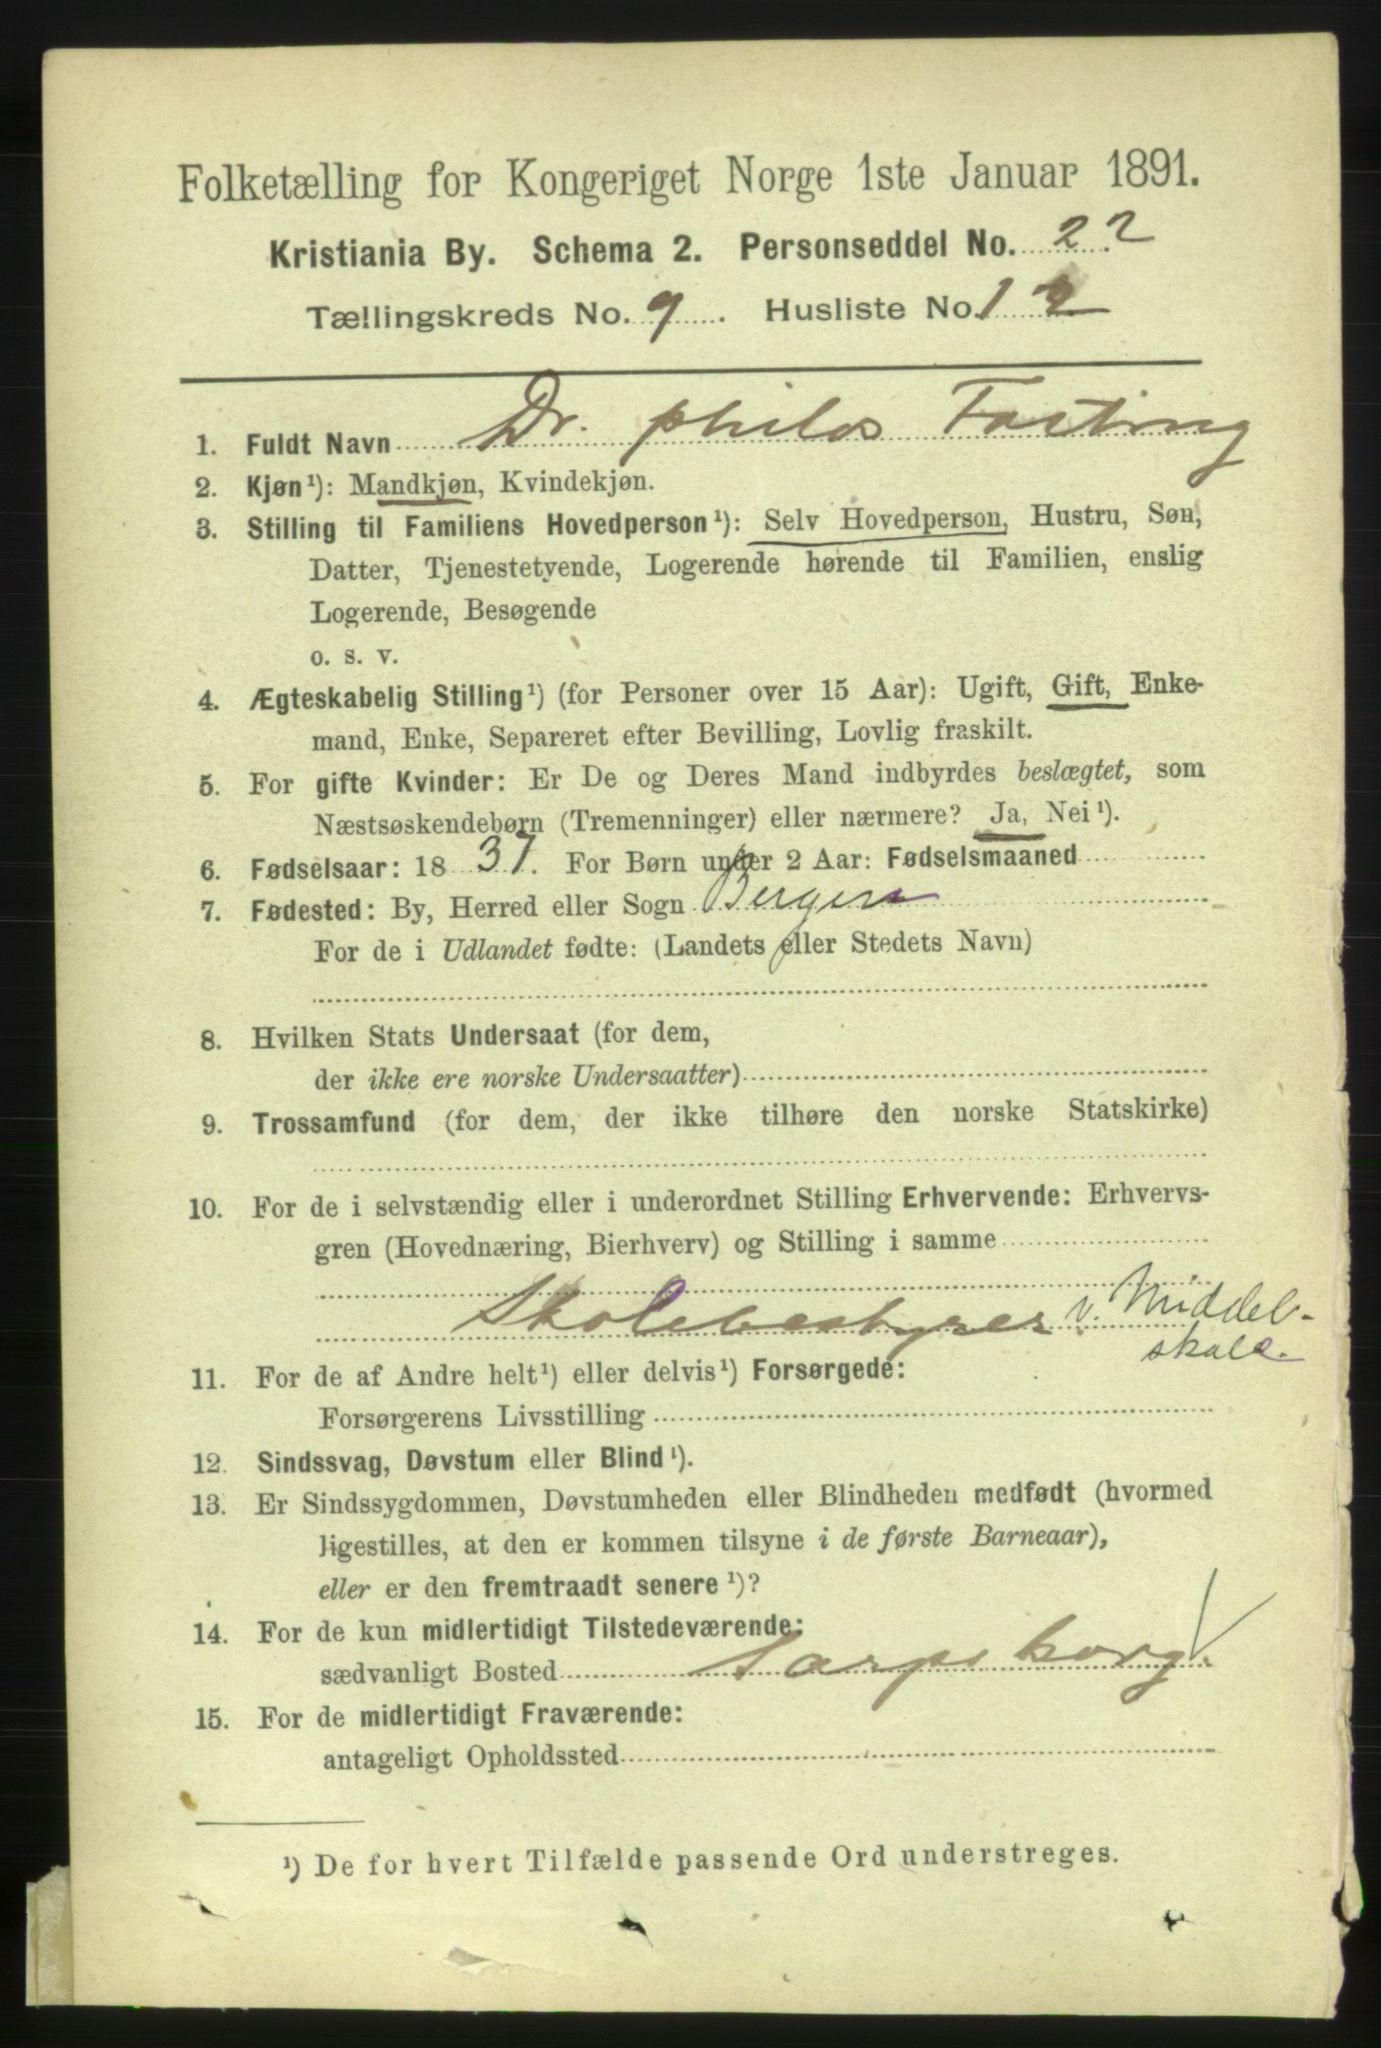 Folketælling for Kongeriget Norge 1ste Januar 1891.
Kristiania By. Schema 2. Personseddel No. 22
Tællingskreds No. 9. Husliste No. 12
1. Fuldt Navn Dr. philos Fasting
2. Kjøn¹): Mandkjøn, Kvindekjøn.
3. Stilling til Familiens Hovedperson¹): Selv Hovedperson, Hustru, Søn,
Datter, Tjenestetyende, Logerende hørende til Familien, enslig
Logerende, Besøgende
o. s. v.
4. Ægteskabelig Stilling¹) (for Personer over 15 Aar): Ugift, Gift, Enke-
mand, Enke, Separeret efter Bevilling, Lovlig fraskilt.
5. For gifte Kvinder: Er De og Deres Mand indbyrdes beslægtet, som
Næstsøskendebørn (Tremenninger) eller nærmere? Ja, Nei¹).
6. Fødselsaar: 1837. For Børn under 2 Aar: Fødselsmaaned
7. Fødested: By, Herred eller Sogn Bergen
For de i Udlandet fødte: (Landets eller Stedets Navn)
8. Hvilken Stats Undersaat (for dem,
der ikke ere norske Undersaatter)
9. Trossamfund (for dem, der ikke tilhøre den norske Statskirke)
10. For de i selvstændig eller i underordnet Stilling Erhvervende: Erhvervs-
gren (Hovednæring, Bierhverv) og Stilling i samme
Skolebestyrer v. Middel-
skole.
11. For de af Andre helt¹) eller delvis¹) Forsørgede:
Forsørgerens Livsstilling
12. Sindssvag, Døvstum eller Blind¹).
13. Er Sindssygdommen, Døvstumheden eller Blindheden medfødt (hvormed
ligestilles, at den er kommen tilsyne i de første Barneaar),
eller er den fremtraadt senere¹)?
14. For de kun midlertidigt Tilstedeværende:
sædvanligt Bosted Sarpsborg
15. For de midlertidigt Fraværende:
antageligt Opholdssted
¹) De for hvert Tilfælde passende Ord understreges.